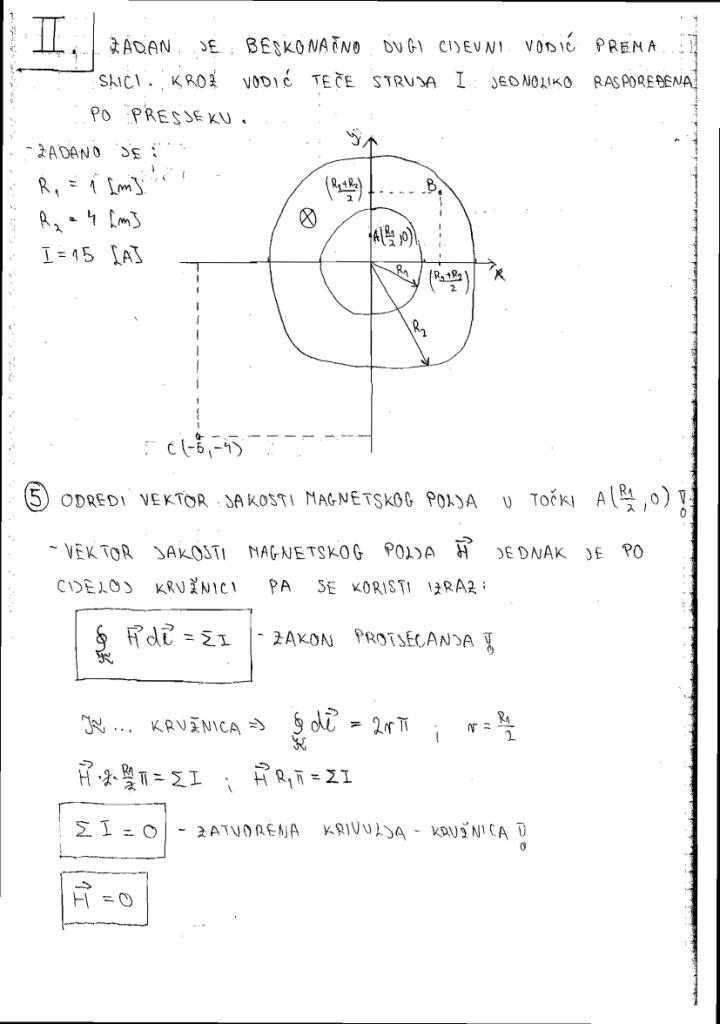 II. ZADAN JE BESKONAČNO DUGI CIJEVNI VODIČ PREMA
SLICI. KROZ VODIČ TEČE STRUJA I JEDNOLIKO RASPOREĐENA
PO PRESJEKU.
- ZADANO JE:
R₁ = 1 [m]
R₂ = 4 [m]
I = 15 [A]
y
(R₁+R₂)/2
B
A(R₁/2, 0)
x
R₁
(R₁+R₂)/2
R₂
C(-5,-4)
⑤ ODREDI VEKTOR JAKOSTI MAGNETSKOG POLJA U TOČKI A(R₁/2, 0)!
- VEKTOR JAKOSTI MAGNETSKOG POLJA H⃗ JEDNAK JE PO
CIJELOJ KRUŽNICI PA SE KORISTI IZRAZ:
∮ H⃗ dl⃗ = ΣI - ZAKON PROTJECANJA!
K ... KRUŽNICA ⇒ ∮ dl⃗ = 2rπ ; r = R₁/2
H⃗ · 2 · R₁/2 π = ΣI ; H⃗ R₁π = ΣI
ΣI = 0 - ZATVORENA KRIVULJA - KRUŽNICA!
H⃗ = 0